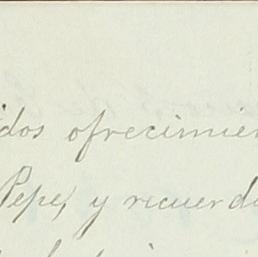 idos ofrecimien
Pepe, y recuerdo